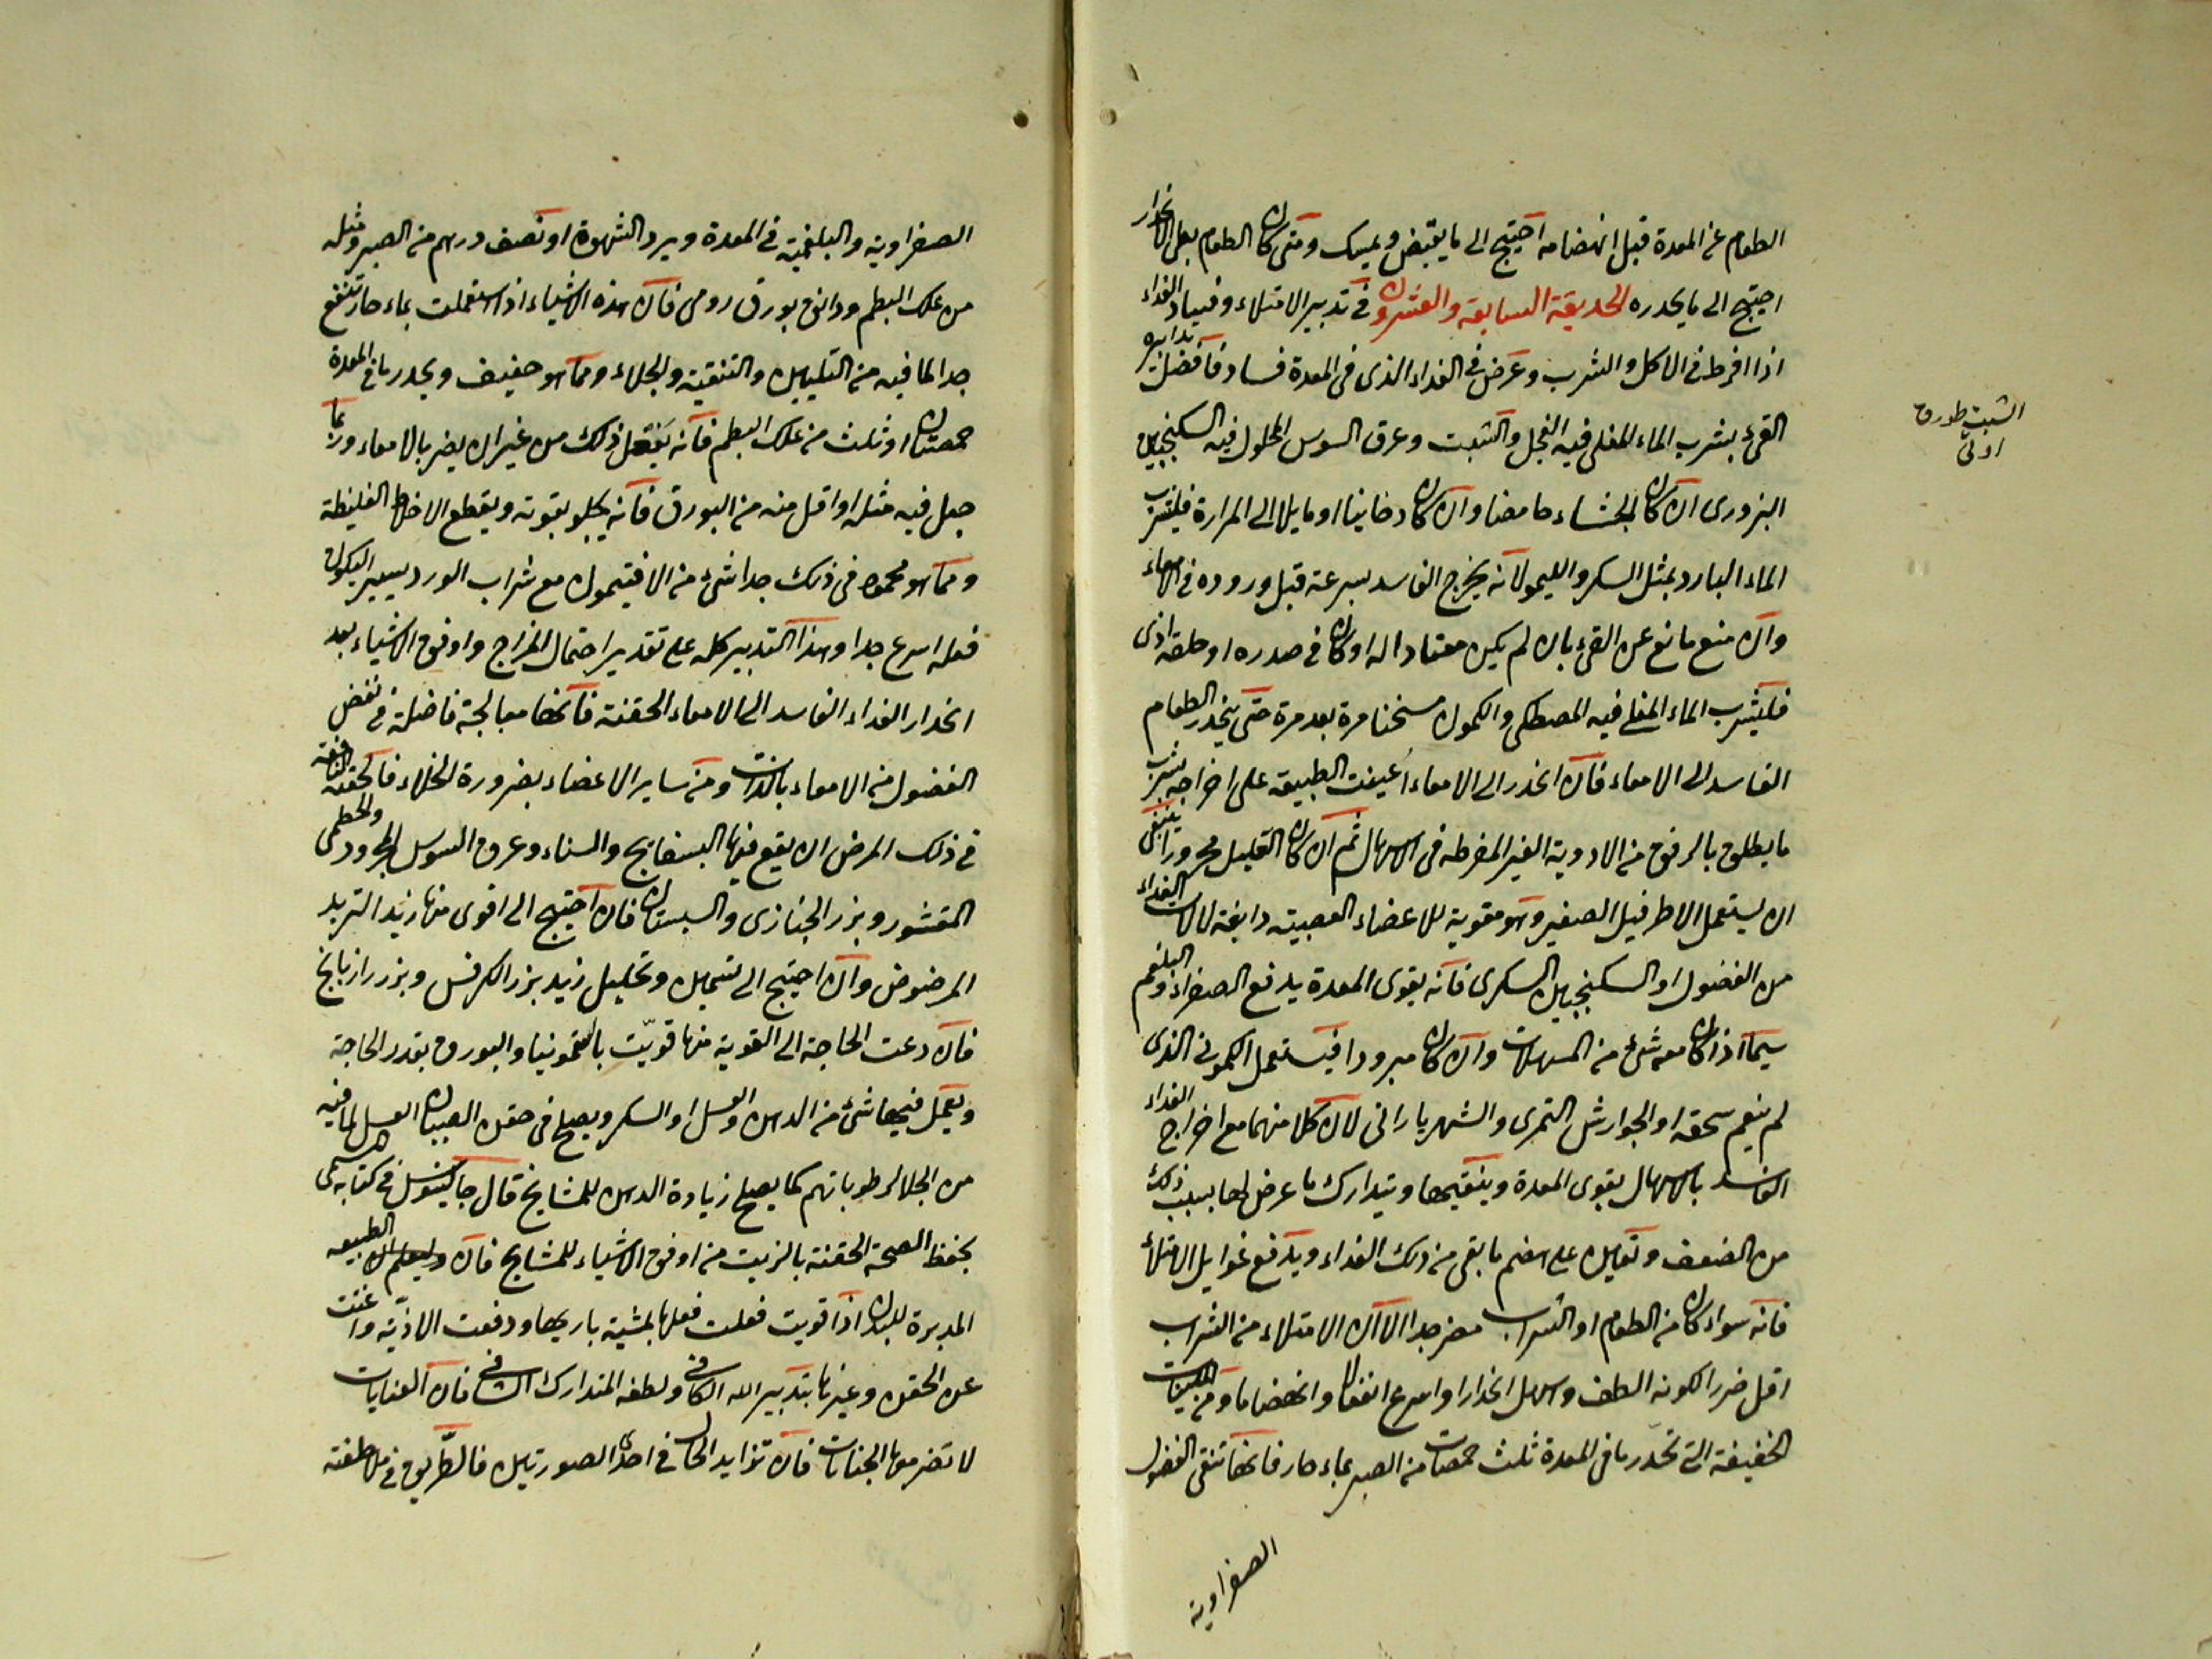 الطعام عن المعدة قبل انهضامه احتيج الى ما يقبض ويمسك ومتى كان الطعام بطى الانحدار
احتيج الى ما يحدره الحديقة السابعة والعشرون فى تدبير الامتلاء وفساد الغذاء
اذا افرط فى الاكل والشرب وعرض فى الغذاء الذى فى المعدة فساد فافضل تدابيره
القئ بشرب الماء المغلى فيه الفجل والشبت وعرق السوس المحلول فيه السكنجبين
البزورى ان كان الجشاء حامضا وان كان دخانيا او مايلا الى المرارة فليشرب
الماء البارد بمثل السكر والليمو لانه يخرج الفاسد بسرعة قبل وروده فى الامعاء
وان منع مانع عن القئ بان لم يكن معتادا له او كان فى صدره او حلقه اذى
فليشرب الماء المغلى فيه المصطكى والكمون مسخنا مرة بعد مرة حتى ينحدر الطعام
الفاسد الى الامعاء فان انحدر الى الامعاء اعينت الطبيعة على اخراجه بشرب
ما يطلق بالرفق من الادوية الغير المفرطة فى الاسهال ثم ان كان العليل محرورا ينبغى
ان يستعمل الاطرفيل الصغير وهو مقوية للاعضاء العصبية دابغة لالات الغذاء
من الفضول او السكنجبين السكرى فانه يقوى المعدة يدفع الصفراء والبلغم
سيما اذا كان معه شئ من المسهلات وان كان مبرودا فيستعمل الكمونى الذى
لم ينعم سحقه او الجوارش التمرى والشهرياراني لان كلا منهما مع اخراج الغذاء
الفاسد بالاسهال يقوى المعدة وينقيها ويتدارك ما عرض لها بسبب ذلك
من الضعف وتعين على هضم ما بقى من ذلك الغذاء ويدفع غوايل الامتلاء
فانه سواء كان من الطعام او الشراب مضر جدا الا ان الامتلاء من الشراب
اقل ضررا لكونه الطف واسهل انحدارا واسرع انفعالا وانهضاما ومن الملينات
الخفيفة التى تحدر ما فى المعدة ثلث حمصات من الصبر بماء حار فانها تنقى الفضول
الصفراوية
الشبت طورق
اوتى
الصفراوية والبلغمية فى المعدة ويرد الشهوة او نصف درهم من الصبر ومثله
من علك البطم ودانق بورق رومى فان هذه الاشياء اذا استعملت بماء حار تنفع
جدا لما فيه من التليين والتنقية والجلاء ومما هو خفيف ويحدر ما فى المعدة
حمصتان او ثلث من علك البطم فانه يفعل ذلك من غير ان يضر بالامعاء وربما
جعل فيه مثله او اقل منه من البورق فانه يجلو بقوته ويقطع الاخلاط الغليظة
ومما هو محمود فى ذلك جدا شئ من الافتيمون مع شراب الورد يسير ليكون
فعله اسرع جدا وهذا التدبير كله على تقدير احتمال المزاج واوفق الاشياء بعد
انحدار الغذاء الفاسد الى الامعاء الحقنة فانها معالجة فاضلة فى نفض
الفضول من الامعاء بالذات ومن ساير الاعضاء بضرورة الخلاء فالحقنة النافعة
فى ذلك المرض ان يقع فيها البسفايج والسناء وعروق السوس المجرود والخطمى
المقشور وبزر الخبازى والسبستان فان احتيج الى اقوى منها زيد التربد
المرضوض وان احتيج الى تسهيل وتحليل زيد بزر الكرفس وبزر رازيانج
فان دعت الحاجة الى القوية منها قويت بالسقمونيا والبورق بقدر الحاجة
ويعمل فيها شئ من الدهن والعسل او السكر ويصلح فى حقن الصبيان العسل لما فيه
من الجلا لرطوباتهم كما يصلح زيادة الدهن للمشايخ قال جالينوس فى كتابه المسمى
بحفظ الصحة الحقنة بالزيت من اوفق الاشياء للمشايخ فان وليعلم ان الطبيعة
المدبرة للبدن اذا قويت فعلت فعلها بمشية باريها ودفعت الاذية واغنت
عن الحقن وغيرها بتدبير الله الكافى ولطفه المتدارك الشافى فان العنايات
لا تضر معها الجنايات فان تزايد الحال فى احدى الصورتين فالطريق فى ملاطفته